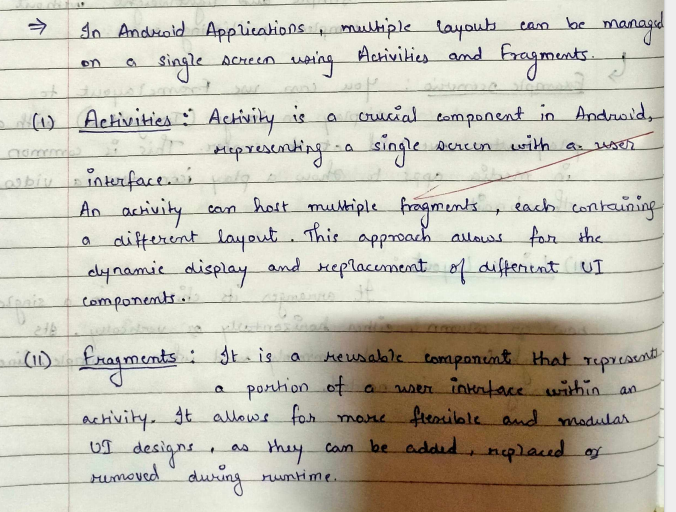 ⇒ In Android Applications, multiple layouts can be managed
on a single screen using Activities and Fragments.
(i) Activities : Activity is a crucial component in Android,
representing a single screen with a user
interface.
An activity can host multiple fragments, each containing
a different layout. This approach allows for the
dynamic display and replacement of different UI
components.
(ii) Fragments : It is a reusable component that represents
a portion of a user interface within an
activity. It allows for more flexible and modular
UI designs, as they can be added, replaced or
removed during runtime.